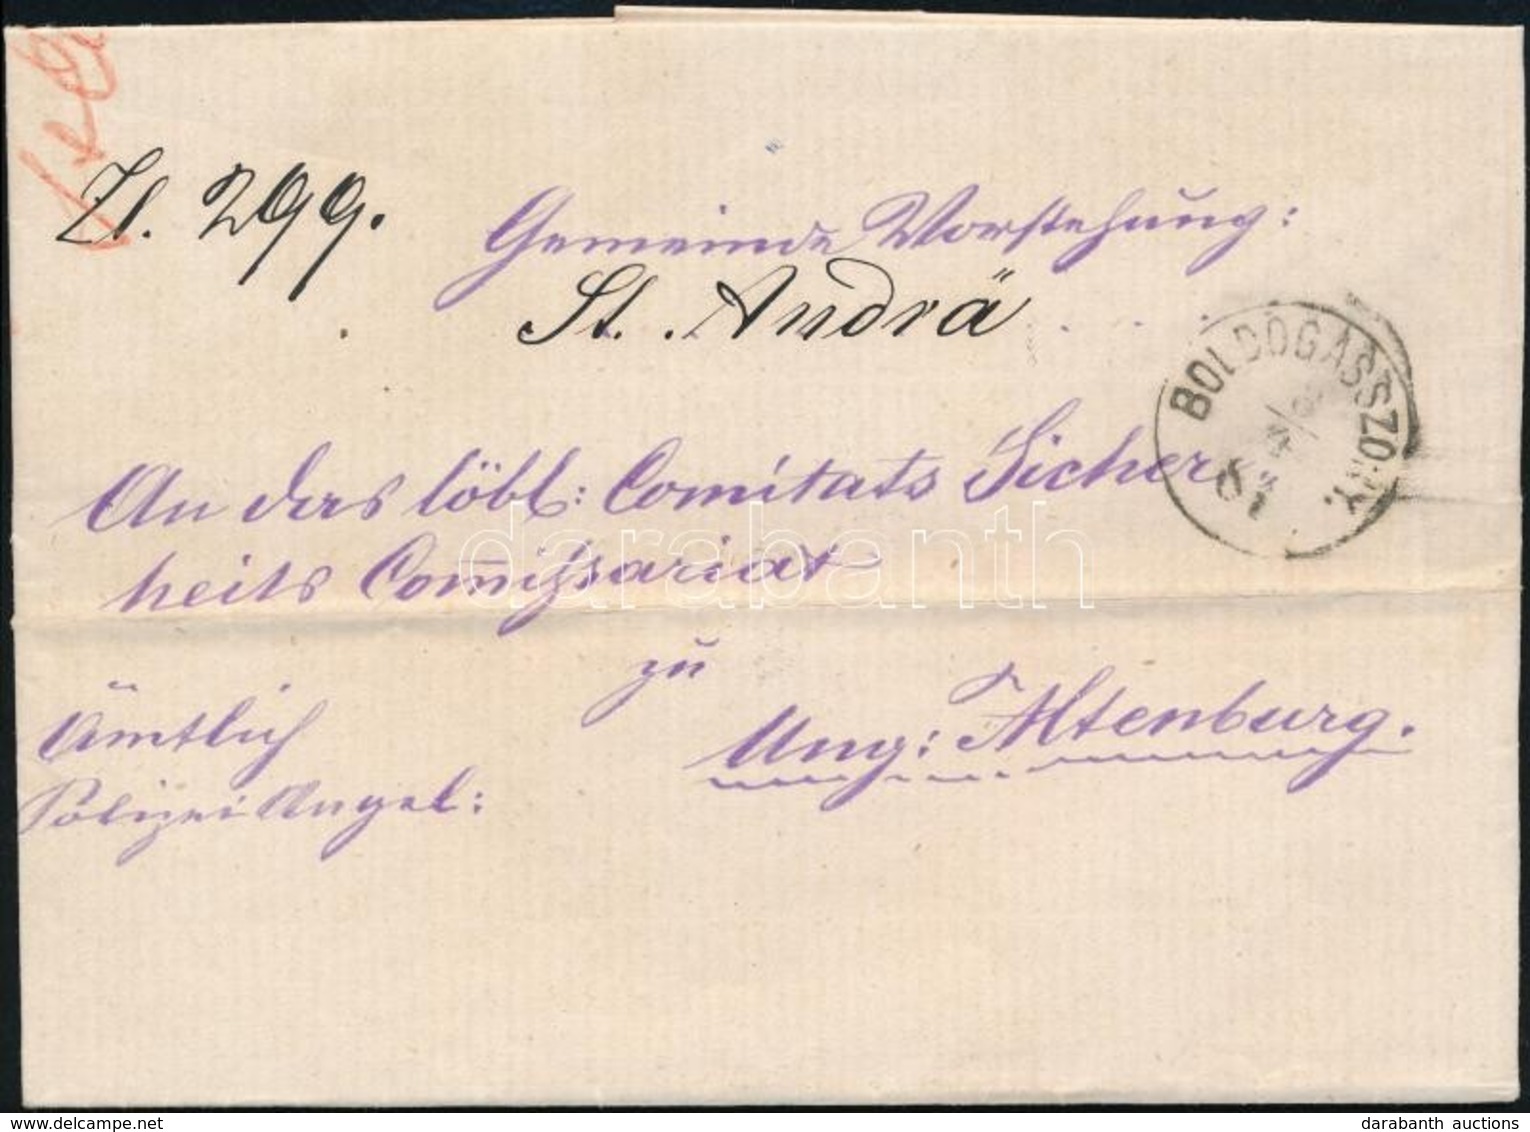 Zl. 299.
Gemeinde Vorstehung:
St. Andrä
BOLDOGASSZONY.
An das löbl: Comitats Sicher
heits Commissariat
zu
Ung: Altenburg.
Ämtlich
Polizei Angel:
darabanth
darabanth auctions